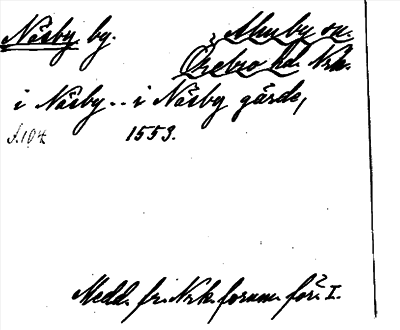 Näsby by. Almby sn.
Örebro hd. Nrk.
i Näsby .. i Näsby gärde,
s. 104. 1553.
Medd. fr. Nrk. fornm. för. I.